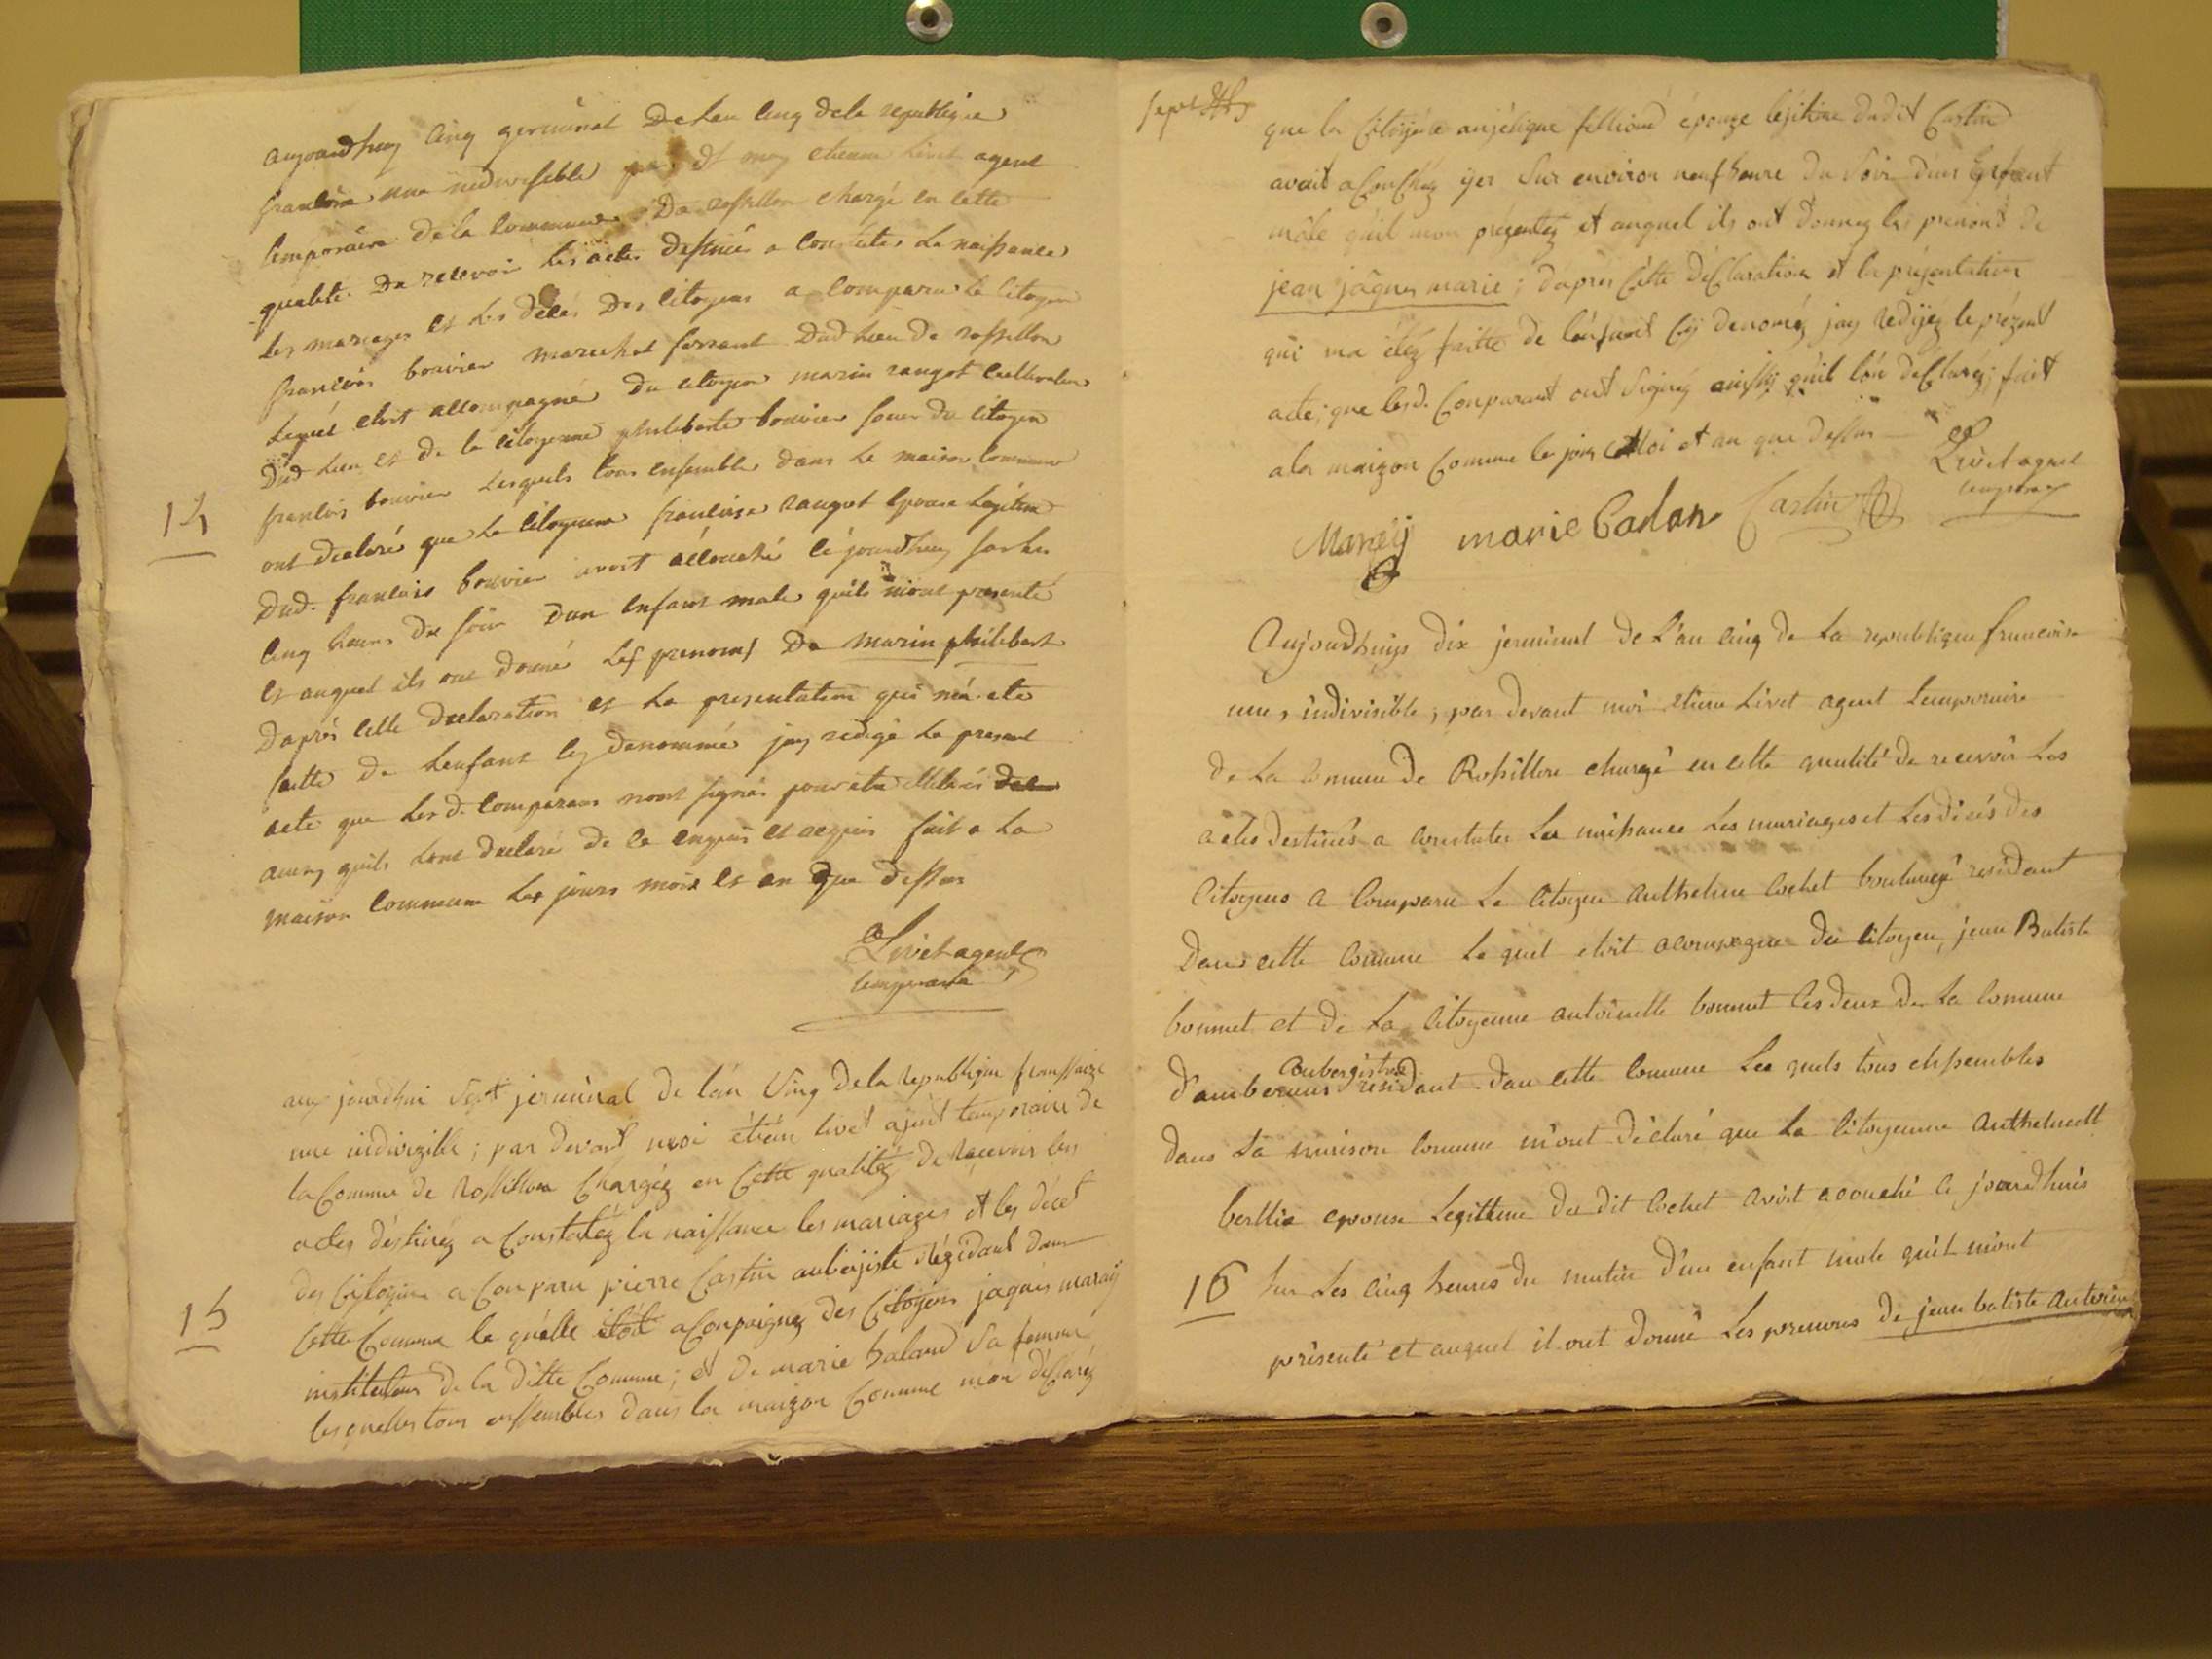 aujourdhuy cinq germinal de lan cinq de la republique
francoise une indivisible par dt moy etienne Livet agent
temporaire de la commune de rossillon chargé en cette
qualité de recevoir les actes destinés a constater la naissance
les mariages et les décès des citoyens a comparu le citoyen
francois bouvier marechal ferrant dud lieu de rossillon
lequel etoit accompagné du citoyen marin rangot cultivateur
dud lieu et de la citoyenne philiberte bouvier soeur du citoyen
francois bouvier lesquels tous ensemble dans la maison commune
14
ont declaré que la citoyenne francoise rangot epouse legitime
dud. francois bouvier avoit accouché ce jourdhuy sur les
cinq heures du soir dun enfant male quils mont presenté
et auquel ils ont donné les prenoms de marin philibert
daprés cette declaration et la presentation qui m'a eté
faitte de lenfant cy denommé jay redigé le present
acte que lesd. comparans nont signés pour etre illiterés
ainsy quils lont declaré de ce enquis et requis fait a la
maison commune les jours mois et an que dessus
Livet agent
temporaire
aux jourdhui sept jerminal de lan sinq de la republique franssaize
une indivizible ; par devant moi étien livet ajent temporaire de
la Comune de Rossillon chargéz en cette qualitéz de recevoir les
actes déstinéz a Constatéz la naissance les mariages et les décet
des citoyens a Conparu pierre Castin auberjiste rézidant dans
15
cette Comune le quélle étoit aConpaignez des Citoyens jaques marey
instituteur de la ditte Comune ; et de marie baland sa femme
lesquelles tous enssembles dans la maizon Comune mon déClaréz
sept
que la Citoyene anjélique fellion épouze lejitime dudit Castin
avait aConChéz yer sur environ neuf heure du soir d'un Enfant
mâle quil mon prézentéz et auquel ils ont donnez les prenons de
jean jâques marie ; daprés cette déClaration et la prézentation
qui ma étéz faitte de lénfant cy denoméz jay redijéz le prézent
acte ; que lesd. Conparant ont signéy ainssy quil lon déClarez ; fait
a la maizon Comune les jour et moi et an que dessus
Livet agent
temporaire
Mareÿ marie Badan Castin
Aujourdhuis dix jerminal de L'an cinq de la republique francoise
une, indivisible ; par devant moi etiene Livet agent temporaire
de la comune de Rossillon chargé en cette qualité de recevoir les
actes destinés a constater la naissance les mariages et les dicés des
citoyens a comparu le citoyen anthelme cochet boulangé residant
dans cette comune le quel etoit acompagné du citoyen, jean Batiste
bonnet et de la citoyenne antoinette bonnet les deux de la comune
aubergistre
d'amberieux residant dans cette comune les quels tous ensembles
dans la maison comune m'ont déclaré que la citoyenne anthelmette
berllie epouse legittime du dit cochet avoit acouché ce jourdhuis
16
sur les cinq heures du matin d'un enfant male qu'il m'ont
présenté et auquel il ont donné les prenoms de jean batiste